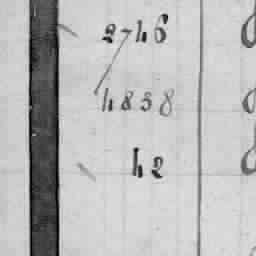 2746
4838
42